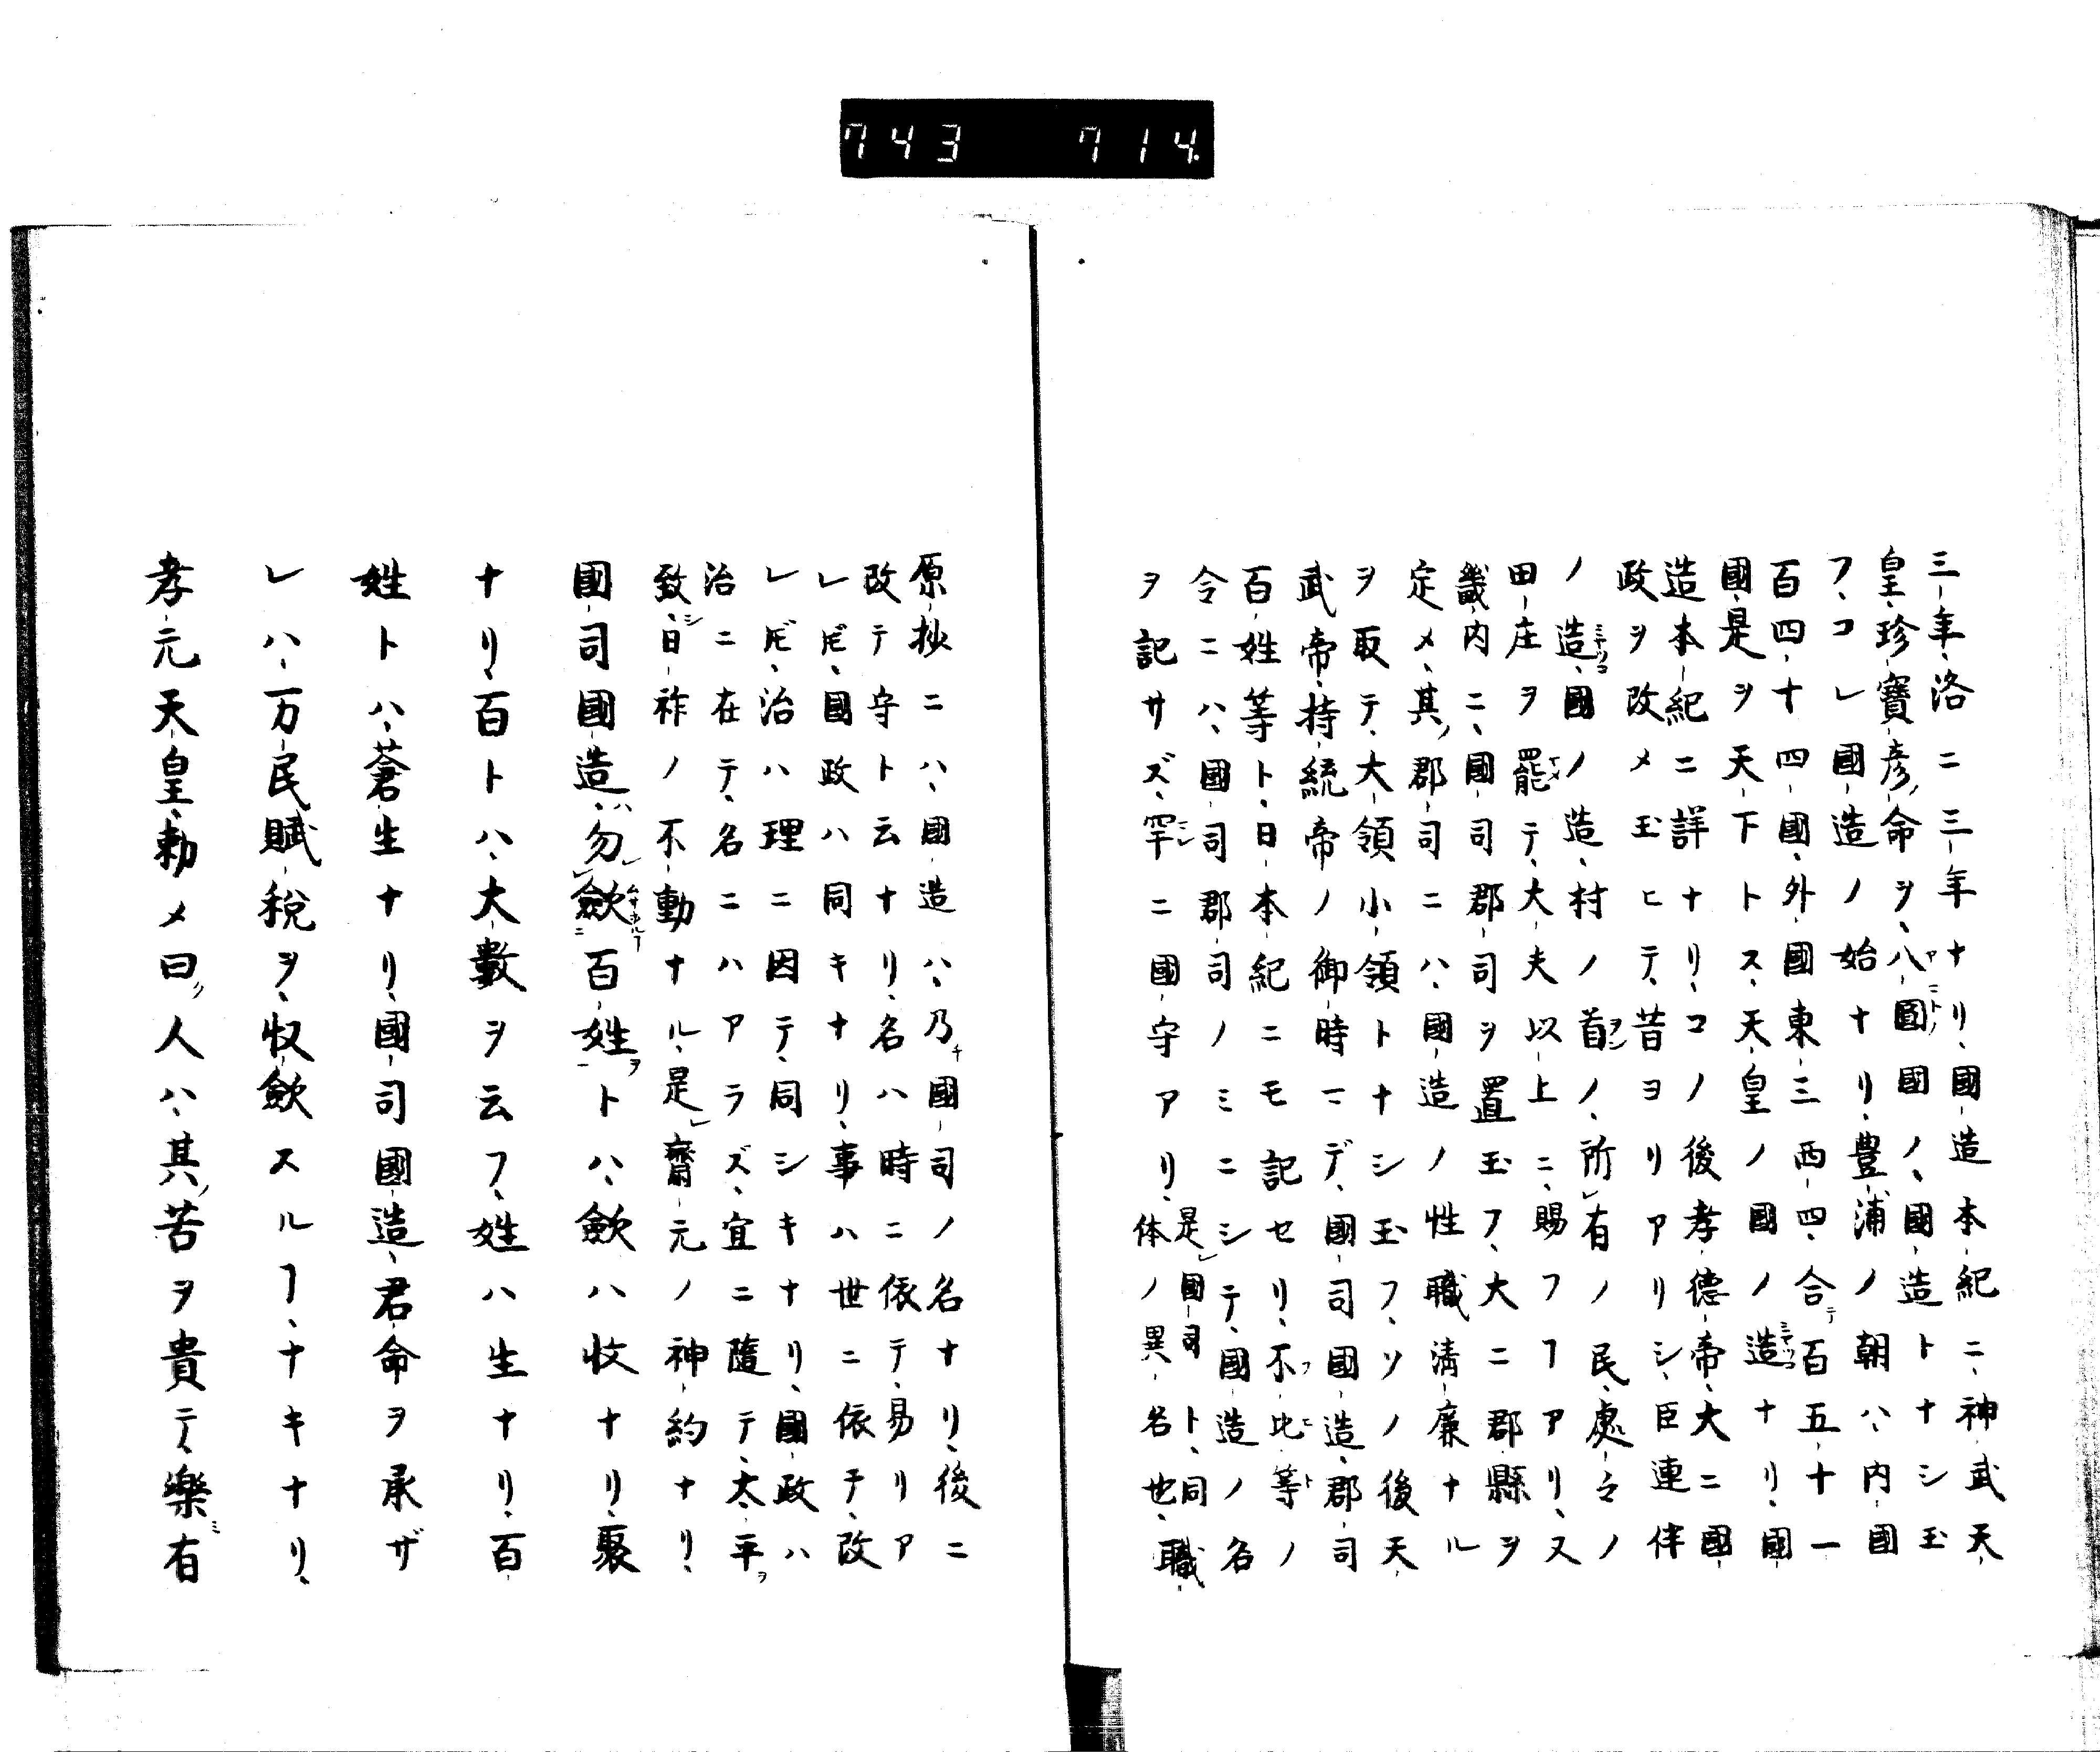 743 714.
三年、洛ニ三年ナリ、國造本紀ニ、神武天
皇、珍寶彦ノ命ヲ、八圓國ノ、國造トナシ玉
フ、コレ國造ノ始ナリ、豊浦ノ朝ハ、内國
百四十四國、外國東三西四、合テ百五十一
國、是ヲ天下トス、天皇ノ國ノ造ナリ、國
造本紀ニ詳ナリ、コノ後孝德帝、大ニ國
政ヲ改メ玉ヒテ、昔ヨリアリシ、臣連伴
ノ造、國ノ造、村ノ首ノ、所有ノ民、處々ノ
田庄ヲ罷テ、大夫以上ニ、賜フフアリ、又
畿内ニ、國司郡司ヲ置玉フ、大ニ郡縣ヲ
定メ、其ノ郡司ニハ、國造ノ性職清廉ナル
ヲ取テ、大領小領トナシ玉フ、ソノ後天
武帝、持統帝ノ御時マデ、國司國造、郡司
百姓等ト、日本紀ニモ記セリ、不比等ノ
令ニハ、國司郡司ノミニシテ、國造ノ名
ヲ記サズ、罕ニ國守アリ、是國司ト、同職
体ノ異名也、
原抄ニハ、國造ハ、乃チ國司ノ名ナリ、後ニ
改テ守ト云ナリ、名ハ時ニ依テ、易リア
レ𪜈、國政ハ同キナリ、事ハ世ニ依テ、改
レ𪜈、治ハ理ニ因テ、同シキナリ、國政ハ
治ニ在テ、名ニハアラズ、宜ニ隨テ、太平ヲ
致シ、日祚ノ不動ナル、是齋元ノ神約ナリ、
國司國造、勿歛百姓トハ、歛ハ收ナリ、聚
ナリ、百トハ、大數ヲ云フ、姓ハ生ナリ、百
姓トハ、蒼生ナリ、國司國造、君命ヲ承ザ
レハ、万民賦税ヲ、収歛スルヿ、ナキナリ、
孝元天皇、勅メ曰ク、人ハ、其ノ苦ヲ貴テ、樂ミ有